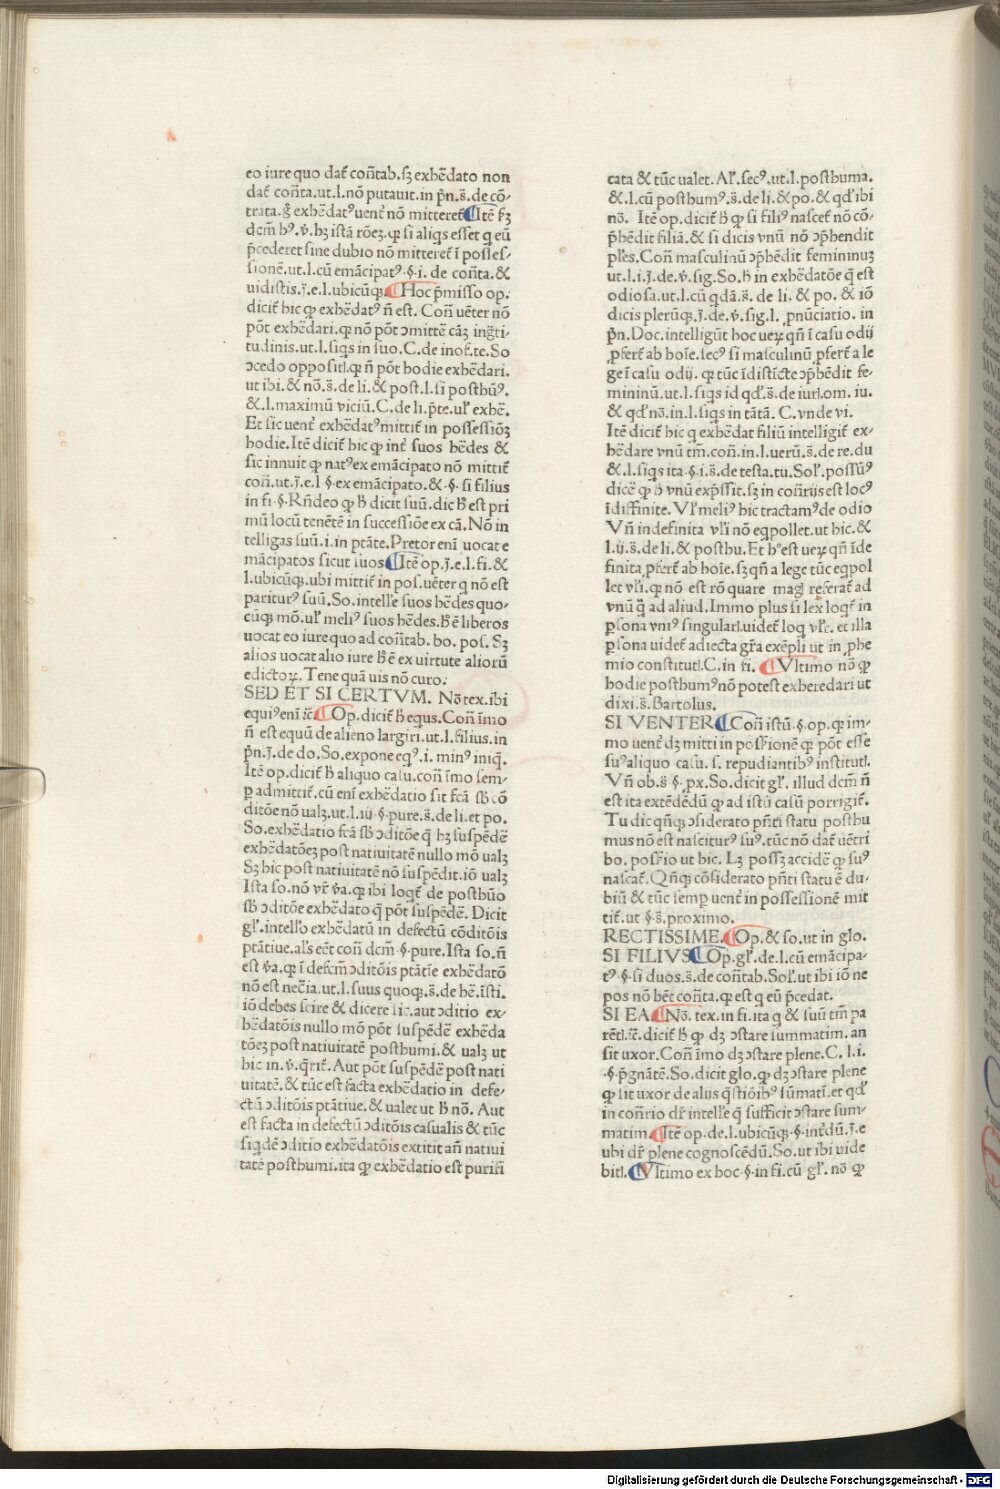 eo iure quo dat̃ con̄tab. sꝫ exhẽdato non
dat̃ con̄ta. ut. l. nõ putauit. in p̃n. s̃. de cõ-
trata. g̃ exhẽdatꝰ uent̃ nõ mitteret̃ ¶ Itẽ fꝫ
dc̃m hꝰ. v̄. hꝫ istã rõeꝫ. ꝙ si aliq̃s esset q eũ
p̃cederet sine dubio nõ mitteret̃ ĩ posses-
sionẽ. ut. l. cũ emãcipatꝰ. §. i. de con̄ta. &
uidistis. ĩ. e. l. ubicũqꝫ. ¶ Hoc p̃misso op.
dicit̃ hic ꝙ exhẽdatꝰ ñ est. Con̄ uẽter nõ
põt exhẽdari. qꝛ nõ põt ɔmittẽ cãꝫ ing̃ti-
tudinis. ut. l. siqs in suo. C. de inof. te. So
ɔcedo oppositl. qꝛ ñ põt hodie exhẽdari.
ut ibi. & nõ. s̃. de li. & post. l. si posthũꝰ.
&. l. maximũ viciũ. C. de li. p̃te. ul̃ exhẽ.
Et sic uent̃ exhẽdatꝰ mittit̃ in possessiõꝫ
hodie. Itẽ dicit̃ hic ꝙ int̃ suos hẽdes &
sic innuit ꝙ natꝰ ex emãcipato nõ mittit̃
con̄. ut. ĩ. e. l §. ex emãcipato. &. §. si filius
in fi. §. Rñdeo ꝙ h̃ dicit suũ. dic h̃ est pri
mũ locũ tenẽtẽ in successiõe ex cã. Nõ in
telligas suũ. i. in ptãte. Pretor enĩ uocat e
mãcipatos sicut suos ¶ Itẽ op. ĩ. e. l. fi. &
l. ubicũqꝫ. ubi mittit̃ in pos. uẽter q nõ est
pariturꝰ suũ. So. intelle suos hẽdes quo-
cũqꝫ mõ. ul̃ meliꝰ suos hẽdes. h̃ ẽ liberos
uocat eo iure quo ad con̄tab. bo. pos. Sꝫ
alios uocat alio iure h̃ ẽ ex uirtute aliorũ
edictoꝝ. Tene quã uis nõ curo.
SED ET SI CERTVM. Nõ tex. ibi
equiꝰ enĩ ĩc̃ ¶ Op. dicit̃ h̃ equs. Con̄ ĩmo
ñ est equũ de alieno largiri. ut. l. filius. in
p̃n. ĩ. de do. So. expone eqꝰ. i. minꝰ iniq̃.
Itẽ op. dicit̃ h̃ aliquo casu. con̄ ĩmo sem-
p̱ admittit̃. cũ enĩ exhẽdatio sit fcã sb̃ cõ
ditõe nõ ualꝫ. ut. l. iij §. pure. s̃. de li. et po.
So. exhẽdatio fcã sb̃ ɔditõe q̃ hꝫ suspẽdẽ
exhẽdatõeꝫ post natiuitatẽ nullo mõ ualꝫ
Sꝫ hic post natiuitatẽ nõ suspẽdit. iõ ualꝫ
Ista so. nõ vr̃ v̄a. qꝛ ibi loqt̃ de posthũo
sb̃ ɔditõe exhẽdato q̃ põt suspẽdẽ. Dicit
gl̃. intello exhẽdatũ in defectũ cõditõis
ptãtiue. al̃s eẽt con̄ dc̃m §. pure. Ista so. ñ
est v̄a. qꝛ ĩ defcm̃ ɔditõis ptãtie exhẽdatõ
nõ est nec̃ia. ut. l. suus quoqꝫ. s̃. de hẽ. ĩsti.
iõ debes scire & dicere sic. aut ɔditio ex-
hẽdatõis nullo mõ põt suspẽdẽ exhẽda
tõeꝫ post natiuitatẽ posthumi. & ualꝫ ut
hic in. v̄. q̃rit̃. Aut põt suspẽdẽ post nati
uitatẽ. & tũc est facta exhẽdatio in defe-
ctũ ɔditõis ptãtiue. & ualet ut h̃ nõ. Aut
est facta in defectũ ɔditõis casualis & tũc
siq̃dẽ ɔditio exhẽdatõis extitit an̄ natiui
tatẽ posthumi. ita ꝙ exhẽdatio est purifi
cata & tũc ualet. Al̃. secꝰ. ut. l. posthuma.
&. l. cũ posthumꝰ. s̃. de li. & po. & qd̃ ibi
nõ. Itẽ op. dicit̃ h̃ ꝙ si filiꝰ nascet̃ nõ cõ-
p̃hẽdit filiã. & si dicis vnũ nõ ɔp̃hendit
pl̃es. Con̄ masculinũ ɔp̃hẽdit femininuꝫ
ut. l. i. ĩ. de. v̄. sig. So. h̃ in exhẽdatõe q̃ est
odiosa. ut. l. cũ qdã. s̃. de li. & po. & iõ
dicis plerũqꝫ. ĩ. de. v̄. sig. l. ꝓnũciatio. in
p̃n. Doc. intelligũt hoc ueꝝ qñ ĩ casu odij
ꝓfert̃ ab hoĩe. secꝰ si masculinũ ꝓfert̃ a le
ge ĩ casu odij. qꝛ tũc ĩdistĩcte ɔp̃hẽdit fe-
mininũ. ut. l. siqs id qd̃. s̃. de iurl. om. iu.
& qd̃ nõ. in. l. siqs in tãtã. C. vnde vi.
Itẽ dicit̃ hic q exhẽdat filiũ intelligit̃ ex-
hẽdare vnũ tm̃. con̄. in. l. uerũ. s̃. de re. du
&. l. siqs ita. §. i. s̃. de testa. tu. Sol̃. possũꝰ
dicẽ ꝙ h̃ vnũ exp̃ssit. sꝫ in con̄rijs est locꝰ
ĩdiffinite. Vl̃ meliꝰ hic tractamꝰ de odio
Vñ indefinita vl̃i nõ eqpollet. ut hic. &
l. ij. s̃. de li. & posthu. Et hᵒ est ueꝝ qñ ĩde
finita ꝓfert̃ ab hoĩe. sꝫ qñ a lege tũc eqpol
let vl̃i. qꝛ nõ est rõ quare mag̃ referat̃ ad
vnũ q̃ ad aliud. Immo plus si lex loqt̃ in
p̱sona vniꝰ singularl. uidet̃ loq vl̃r. et illa
p̱sona uidet̃ adiecta gr̃a exẽpli ut in ꝓhe
mio constitutl. C. in fi. ¶ Vltimo nõ ꝙ
hodie posthumꝰ nõ potest exheredari ut
dixi. s̃. Bartolus.
SI VENTER ¶ Con̄ istũ. §. op. qꝛ im-
mo uent̃ dꝫ mitti in poss̃ionẽ qꝛ põt esse
suꝰ aliquo casu. s. repudiantibꝰ institutl.
Vñ ob. s̃ §. ꝓx. So. dicit gl̃. illud dc̃m ñ
est ita extẽdẽdũ ꝙ ad istũ casũ porrigit̃.
Tu dic qñqꝫ ɔsiderato p̃nti statu posthu
mus nõ est nasciturꝰ suꝰ. tũc nõ dat̃ uẽtri
bo. poss̃io ut hic. Lꝫ possꝫ accidẽ ꝙ suꝰ
nascat̃. Qñqꝫ cõsiderato p̃nti statu ẽ du-
biũ & tũc semp̱ uent̃ in possessionẽ mit
tit̃. ut §. s̃. proximo.
RECTISSIME. ¶ Op. & so. ut in glo.
SI FILIVS ¶ Op. gl̃. de. l. cũ emãcipa-
tꝰ §. si duos. s̃. de con̄tab. Sol̃. ut ibi iõ ne
pos nõ hẽt con̄ta. qꝛ est q eũ p̃cedat.
SI EA. ¶ Nõ. tex. in fi. ita q & suũ tm̃ pa
rẽtl. ĩc̃. dicit̃ h̃ ꝙ dꝫ ɔstare summatim. an
sit uxor. Con̄ ĩmo dꝫ ɔstare plene. C. l. i.
§. p̃gnãtẽ. So. dicit glo. ꝙ dꝫ ɔstare plene
ꝙ sit uxor de alijs q̃stiõibꝰ sũmatĩ. et qd̃
in con̄rio dr̃ intelle q̃ sufficit ɔstare sum-
matim. ¶ Itẽ op. de. l. ubicũqꝫ. §. int̃dũ. ĩ. e
ubi dr̃ plene cognoscẽdũ. So. ut ibi uide
bitl. ¶ Vltimo ex hoc. §. in fi. cũ gl̃. nõ ꝙ
Digitalisierung gefördert durch die Deutsche Forschungsgemeinschaft - DFG